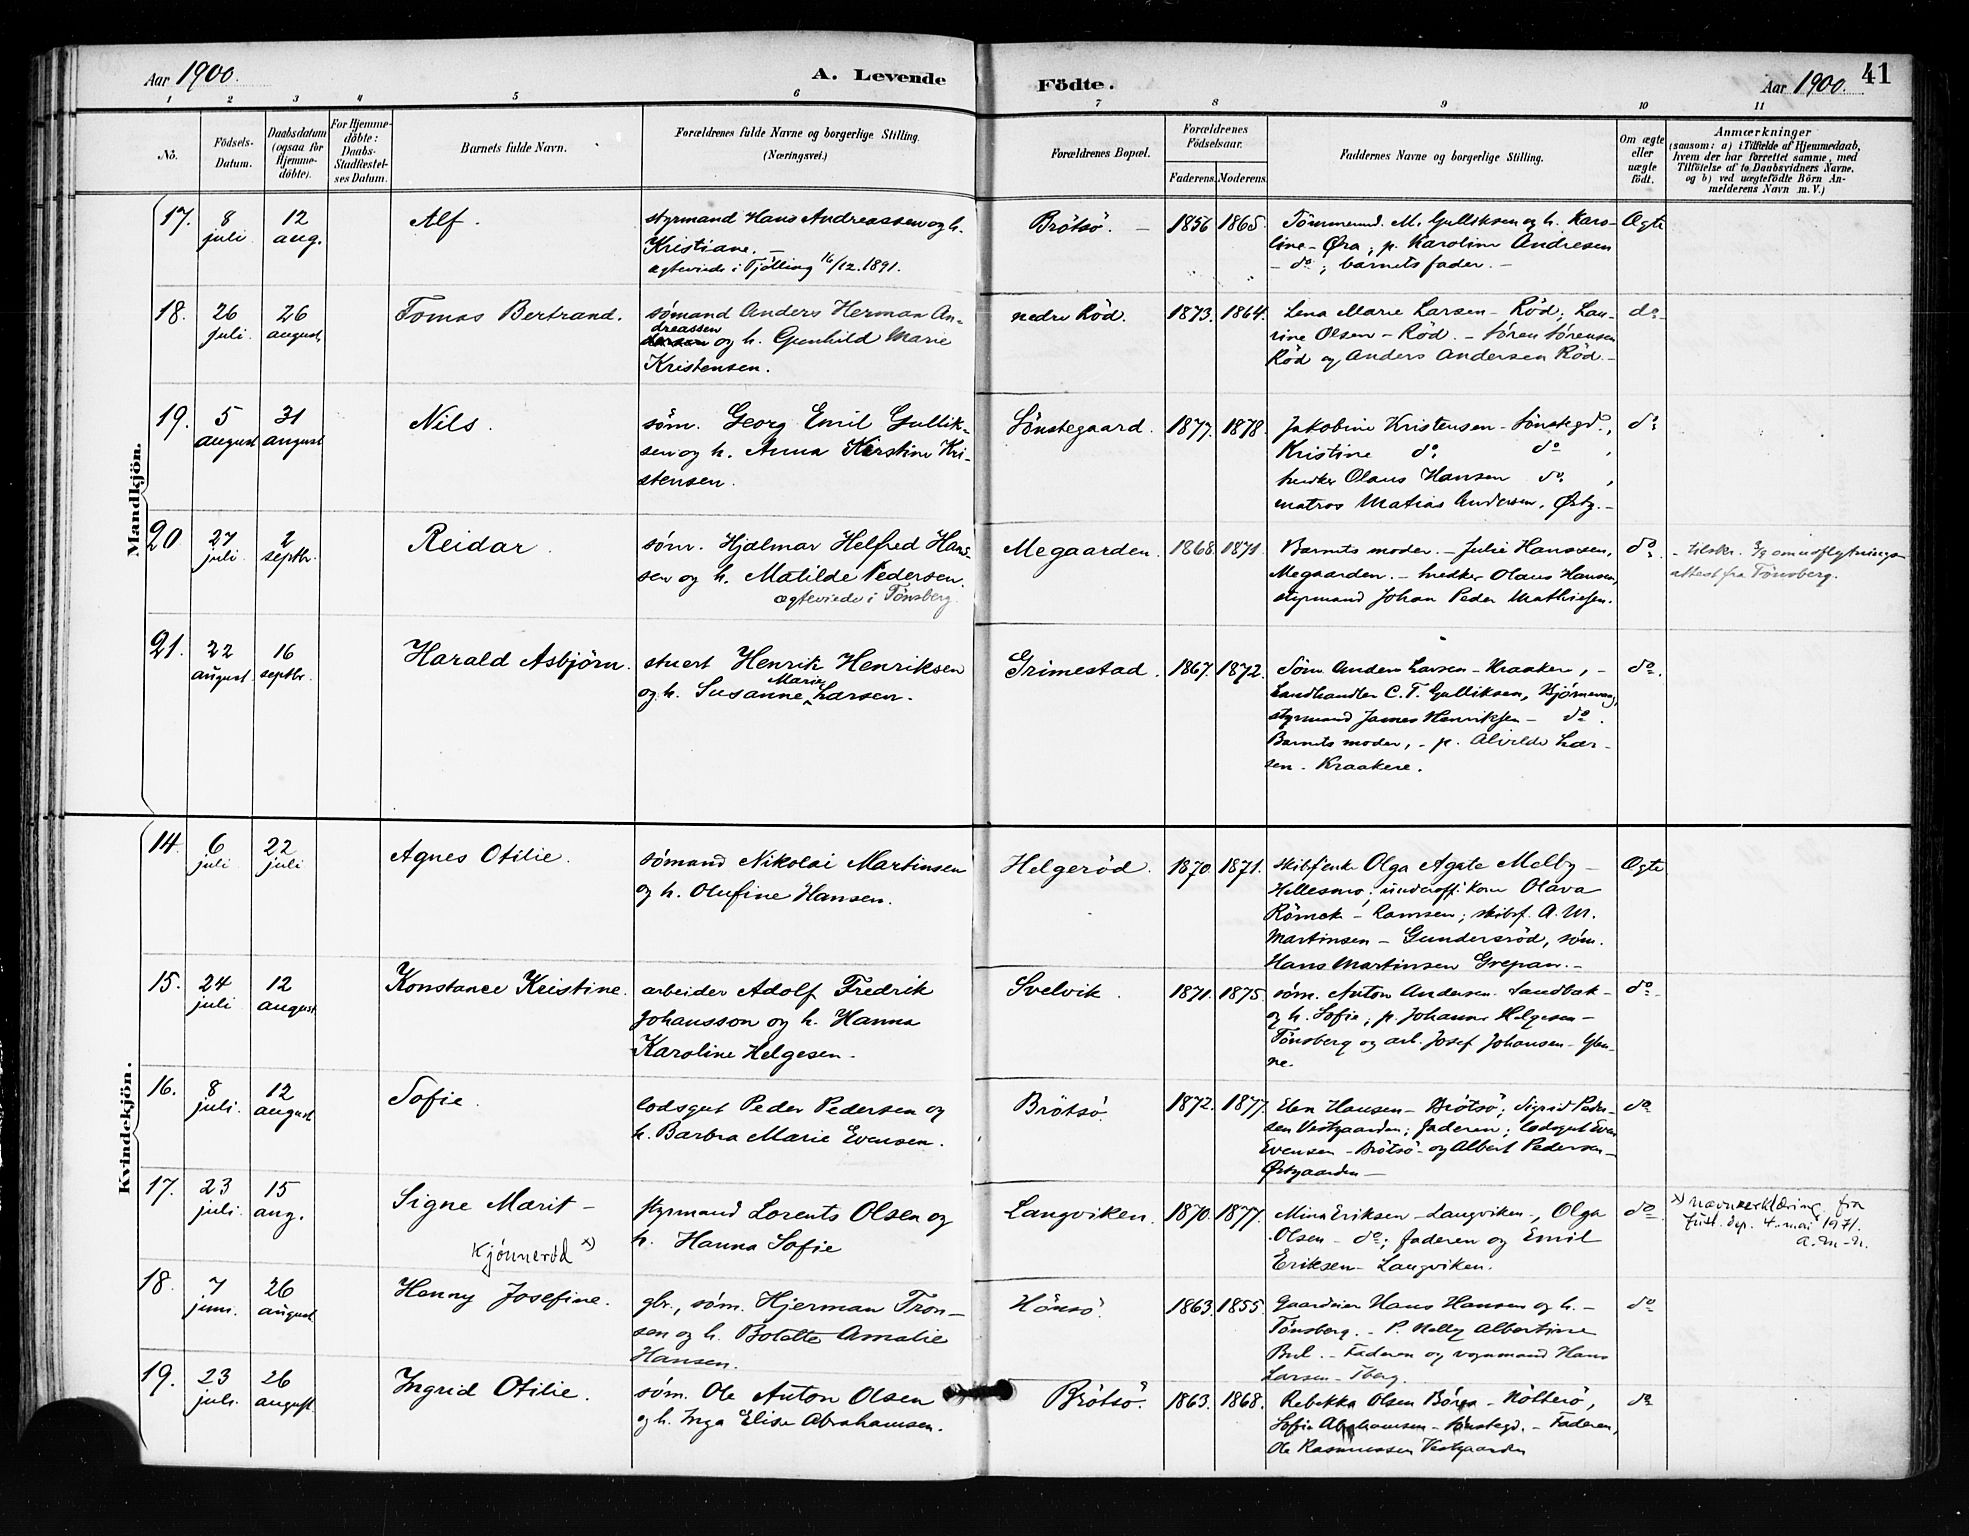 Aar 1900.
A. Levende
Födte.
Aar 1900.
41
1 2 3 4 5 6 7 8 9 10 11
No.
Födsels-
Datum.
Daabsdatum
(ogsaa for
Hjemme-
döbte).
For Hjemme-
döbte:
Daabs-
Stadfæstel-
ses Datum.
Barnets fulde Navn.
Forældrenes fulde Navne og borgerlige Stilling.
(Næringsvei.)
Forældrenes Bopæl.
Forældrenes
Födselsaar.
Faderens.
Moderens.
Faddernes Navne og borgerlige Stilling.
Om ægte
eller
uægte
födt.
Anmærkninger
(saasom: a) i Tilfælde af Hjemmedaab,
hvem der har forrettet samme, med
Tilföielse af to Daabsvidners Navne.
og b) ved uægtefödte Börn An-
melderens Navn m. V.)
Mandkjön.
17.
8
juli
12
aug.
Alf.
styrmand Hans Andreassen og h.
Kristiane. –
ægteviede i Tjölling 16/12.1891.
Brötsö. –
1856
1865.
Tömmermd. M. Gulliksen og h. Karo-
line – Øra; p. Karoline Andresen
– do; barnets fader. –
Ægte
18.
26
juli.
26
august.
Tomas Bertrand.
sømand Anders Herman An-
dreassen
og h. Gunhild Marie
Kristensen.
nedre Röd.
1873.
1864.
Lena Marie Larsen – Röd; Lau-
rine Olsen – Röd. – Sören Sörensen
Röd og Anders Andersen Röd. –
do
19.
5
august
31
august
Nils.
søm. Georg Emil Gullik-
sen og h. Anna Kirstine Kri-
stensen.
Sönstegaard.
1877.
1878.
Jakobine Kristensen – Sönstegd.,
Kristine do. do,
Olaus Hansen do,
matros Matias Andersen, Østg. –
do
20
27
juli.
2
septbr.
Reidar.
søm. Hjalmar Helfred Hans-
sen og h. Matilde Pedersen.
ægteviede i Tönsberg.
Megaarden.
1868.
1871.
Barnets moder. – Julie Hanssen,
Megaarden. – Olaus Hansen,
styrmand Johan Peder Mathiesen.
do.
– tilskr. 3/9 om udflytnings-
attest fra Tönsberg.
21.
22
august.
16
septbr.
Harald Asbjörn.
stuert Henrik Henriksen
og h. Susanne Marie Larsen.
Grimestad.
1867.
1872.
Søm. Anders Larsen – Kraakere, –
Landhandler C. T. Gulliksen,
styrmand James Henriksen – do.
Barnets moder, – p. Alvilde Lar-
sen – Kraakere.
do.
Kvindekjön.
14.
6
juli
22
juli
Agnes Otilie.
sømand Nikolai Martinsen
og h. Olufine Hansen.
Helgeröd.
1870.
1871.
Olga Agate Melby –
Hellesmo; underoff. kone Olava
Römek – Ramsen; skibsf. A. M.
Martinsen – Gundersröd, søm.
Hans Martinsen Grepan. –
Ægte
15.
24
juli
12
august.
Konstance Kristine.
arbeider Adolf Fredrik
Johansson og h. Hanna
Karoline Helgesen.
Svelvik.
1871.
1875.
søm. Anton Andersen Sandbæk –
og h. Sofie; p. Johanne Helgesen –
Tönsberg og arb. Josef Johansen – Glen-
ne.
do
16.
8
juli.
12
august.
Sofie.
lodsgut Peder Pedersen og
h. Barbra Marie Evensen.
Brötsö.
1872.
1877.
Elen Hansen – Brötsö; Sigrid Peder-
sen Vestgaarden; faderen; lodsgut Even
Evensen – Brötsö – og Albert Pedersen –
Østgaarden –
do
17.
23
juli.
15
aug.
Signe Marit –
Kjønnerød x)
styrmand Lorents Olsen og
h. Hanna Sofie
Langviken.
1870.
1877.
Mina Eriksen – Langviken –, Olga
Olsen – do; faderen og Emil
Eriksen – Langviken.
do
x) Navneerklæring fra
Just. dep. 4. mai 1971.
A. M-N.
18.
7
juni.
26
august
Henny Josefine.
gbr., søm. Hjerman Tron-
sen og h. Botette Amalie
Hansen.
Hönsö
1863.
1855.
Gaardeier Hans Hansen og h. –
Tönsberg. – P. Nelly Albertine
Bul. – Faderen og vognmand Hans
Larsen – Tberg.
do
19.
23
juli.
26
august.
Ingrid Otilie.
søm. Ole Anton Olsen
og h. Inga Elise Abrahamsen.
Brötsö.
1863.
1868.
Rebekka Olsen – Nötterö,
Sofie Abrahamsen – Sönstegd. – Faderen,
Ole Rasmussen Vestgaarden
do